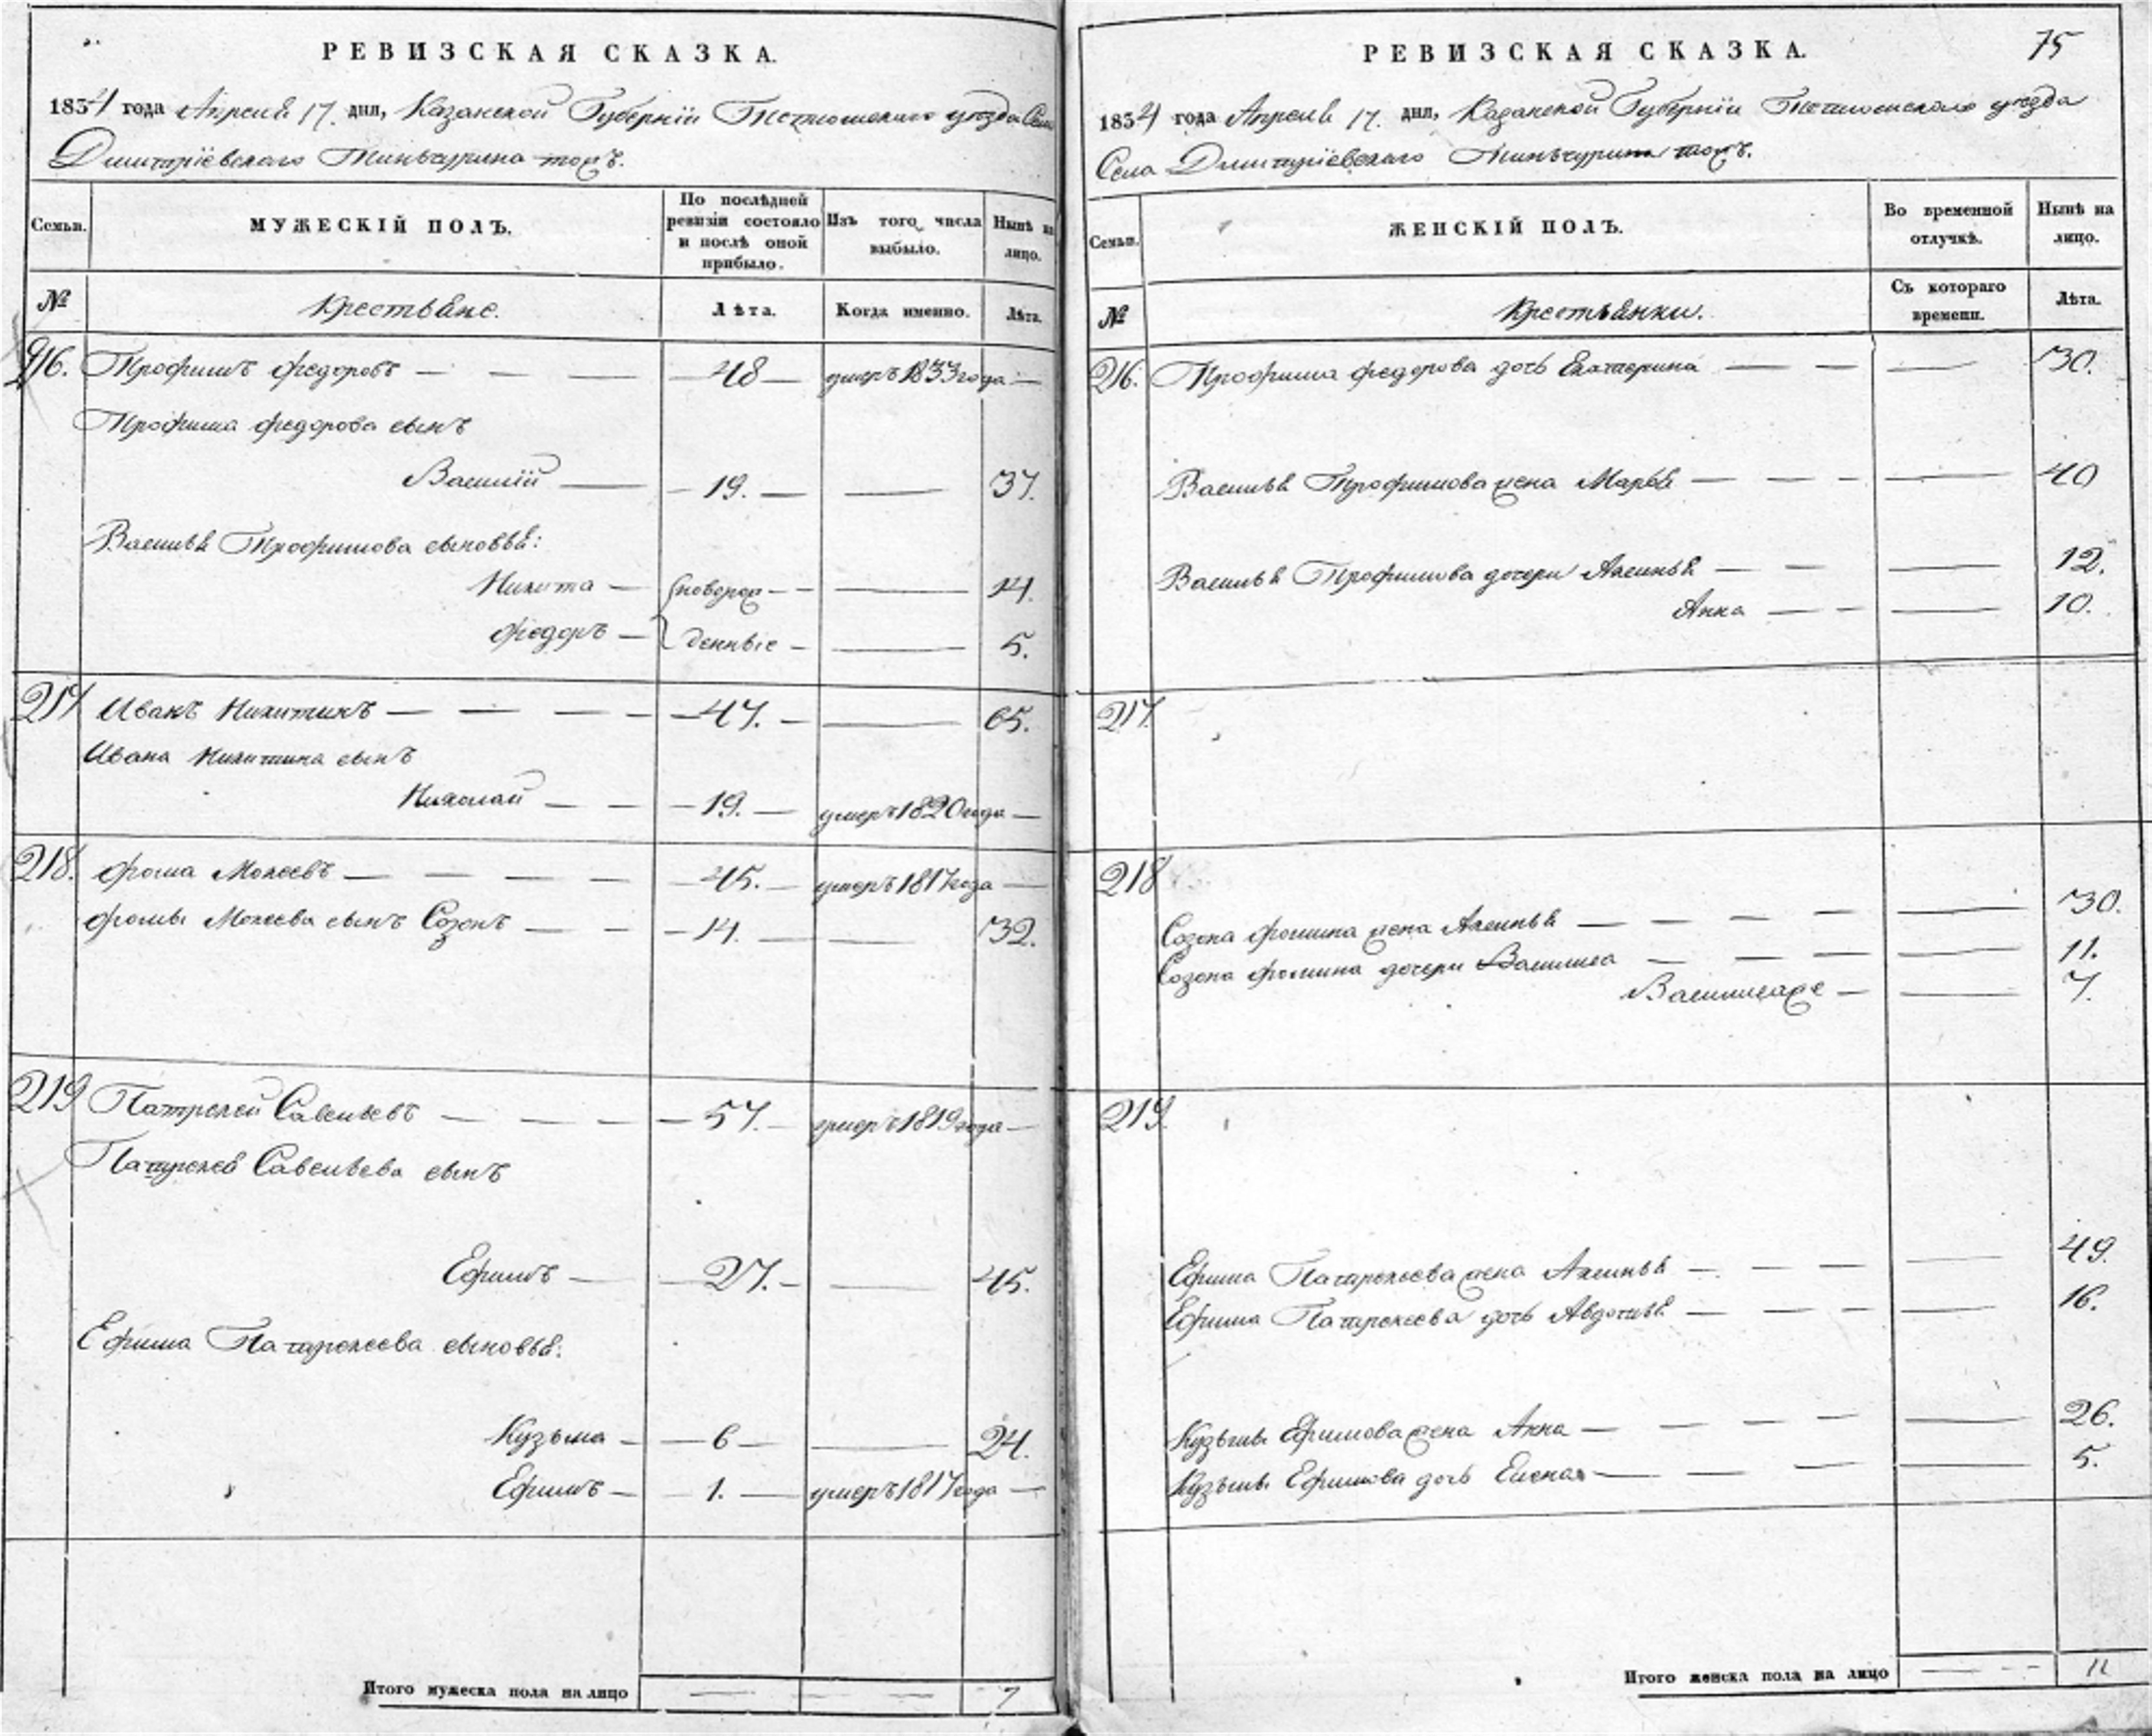 РЕВИЗСКАЯ СКАЗКА.
1834 года Апреля 17 дня, Казанской Губернiи Тетюшскаго уезда Села
Дмитрiевскаго Тинчурина тожъ.
Семьи.
МУЖЕСКIЙ ПОЛЪ.
По послѣдней ревизiи состояло и послѣ оной прибыло.
Изъ того числа выбыло.
Нынѣ на лицо.
№
Крестьяне.
Лѣта.
Когда именно.
Лѣта.
216. Трофимъ Федоровъ — 48 — умеръ 1833 года —
Трофима Федорова сынъ
Василiй — 19. — — 37.
Василья Трофимова сыновья:
Никита — новорож- — 14.
Федоръ — денные — 5.
217 Иванъ Никитинъ — 47. — — 65.
Ивана Никитина сынъ
Николай — 19. — умеръ 1820 года —
218. Фома Мокеевъ — 45. — умеръ 1817 года —
Фомы Мокеева сынъ Созонъ — 14. — — 32.
219 Патрекей Савельевъ — 57. — умеръ 1819 года —
Патрекея Савельева сынъ
Ефимъ — 27. — — 45.
Ефима Патрекеева сыновья:
Кузьма — 6 — — 24.
Ефимъ — 1. — умеръ 1817 года —
Итого мужеска пола на лицо — — 7
РЕВИЗСКАЯ СКАЗКА.
75
1834 года Апреля 17. дня, Казанской Губернiи Тетюшскаго уезда
Села Дмитрiевскаго Тинчурина тожъ.
Семьи.
ЖЕНСКIЙ ПОЛЪ.
Во временной отлучкѣ.
Нынѣ на лицо.
№
Крестьянки.
Съ котораго времени.
Лѣта.
216. Трофима Федорова дочь Екатерина — — 30.
Василья Трофимова жена Марья — — 40
Василья Трофимова дочери Аксинья — — 12.
Анна — — 10.
217.
218
Созона Фомина жена Аксинья — — 30.
Созона Фомина дочери Василиса — — 11.
Василисаже — — 7.
219.
Ефима Патрекеева жена Аксинья — — 49.
Ефима Патрекеева дочь Авдотья — — 16.
Кузьмы Ефимова жена Анна — — 26.
Кузьмы Ефимова дочь Елена — — 5.
Итого женска пола на лицо — — 11